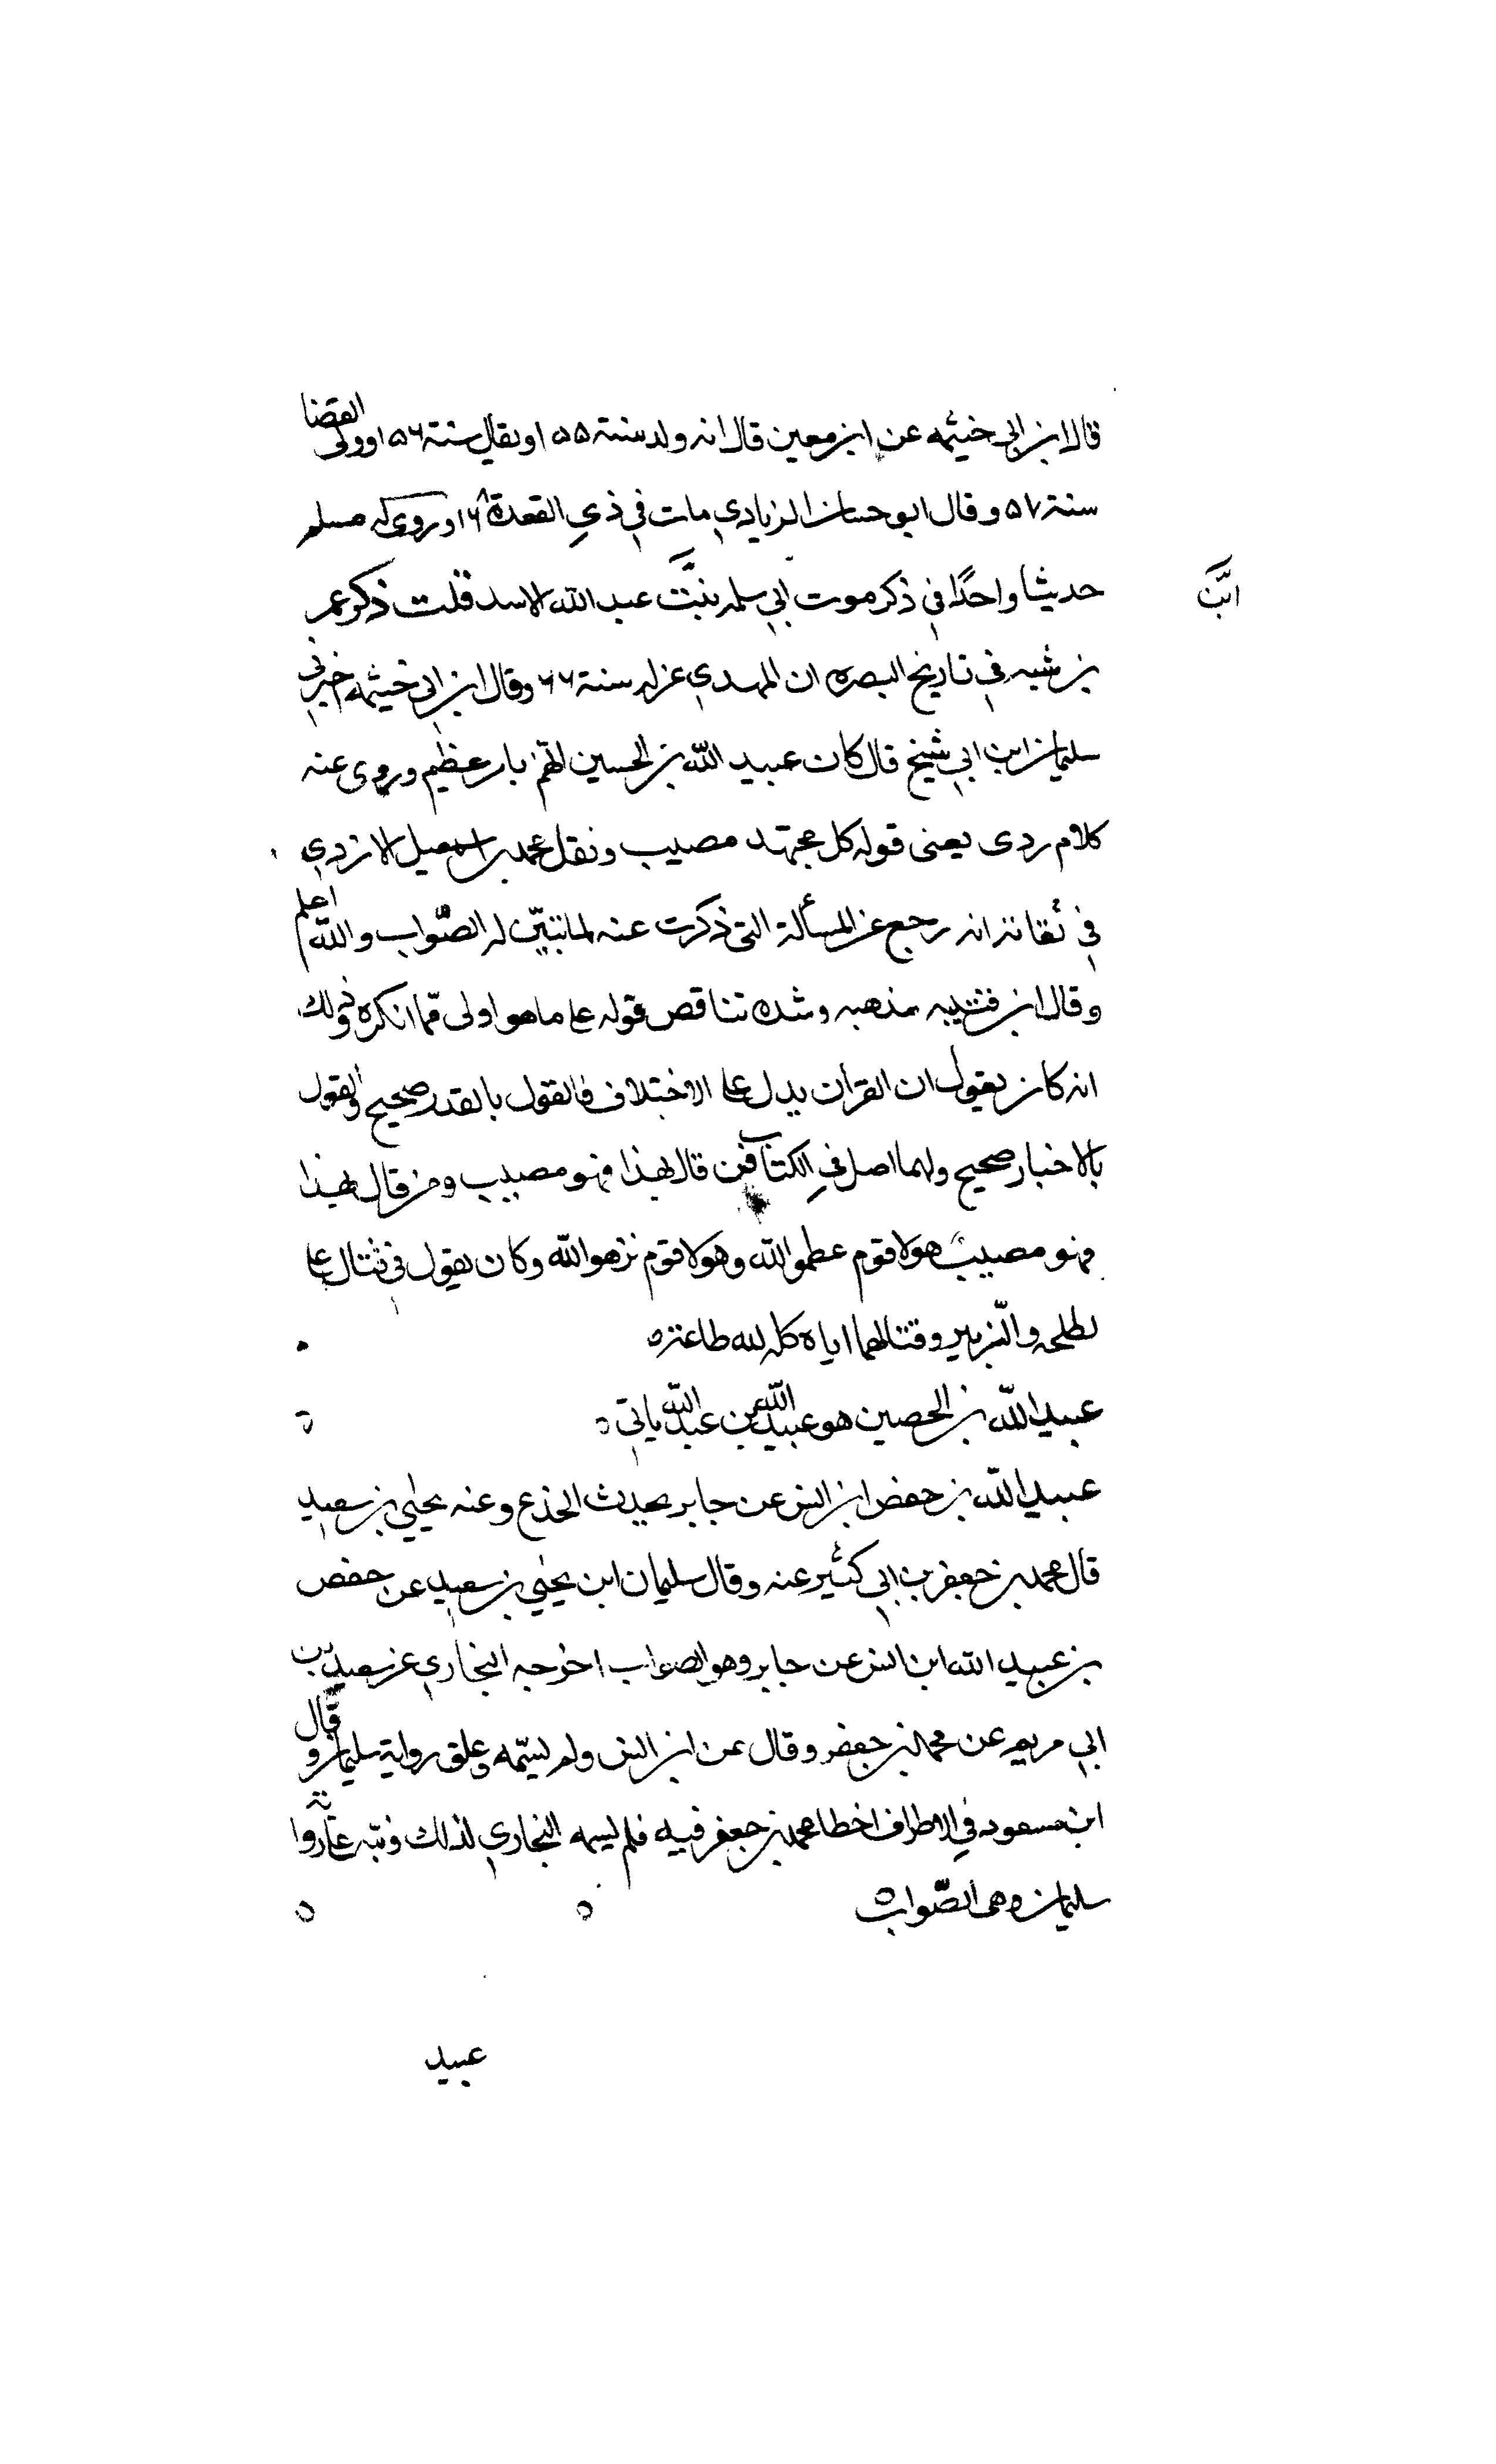 قال ابن ابي خيثمه عن ابن معين قال انه ولد سنة ١٥٥ ويقال سنة ١٥٦ وولي القضا
سنة ٥٧ وقال ابو حسان الزيادي مات في ذي القعدة ١٦٨ وروي له مسلم
حديثا واحدًا في ذكر موت ابي سلمه بنت عبد الله الاسد قلت ذكر عمر
ابن
بن شبه في تاريخ البصره ان المهدي عزله سنة ٦٦ وقال ابن ابي خيثمه اخبرني
سليمان ابن ابي شيخ قال كان عبيد الله بن الحسين اتهم بامر عظيم وروي عنه
كلام ردى يعنى قوله كل مجتهد مصيب ونقل محمد بن اسمعيل الازدي
في ثقاته انه رجع عن المسألة التى ذكرت عنه لما تبيّن له الصّواب والله اعلم
وقال ابن قتيبه مذهبه وشده تناقض قوله على ما هو اولى ممّا انكره وذلك
انه كان يقول ان القرآن يدل على الاختلاف فالقول بالقدر صحيح والقول
بالاخبار صحيح ولهما اصل في الكتاب فمن قال بهذا فهو مصيب ومن قال بهذا
فهو مصيب هولا قوم عظموا الله وهولا قوم نزهوا الله وكان يقول في قتال على
لطلحه والزبير وقتالهما اياه كله لله طاعة ه
عبيد الله بن الحصين هو عبيد الله بن عبد الله ياتي ه
عبيد الله بن حفص ابن انس عن جابر بحديث الجذع وعنه يحيى بن سعيد
قال محمد بن جعفر بن ابي كثير عنه وقال سليمان ابن يحيى بن سعيد عن حفص
بن عبيد الله ابن انس عن جابر وهو الصواب اخرجه البخاري عن سعيد بن
ابي مريم عن محمد بن جعفر وقال عن ابن انس ولم يسمّه وعلق رواية سليمان وقال
ابن مسعود في الاطراف اخطا محمد بن جعفر فيه فلم يسمه البخاري لذلك ونبّه على رواية
سليمان وهي الصّواب ه
عبيد